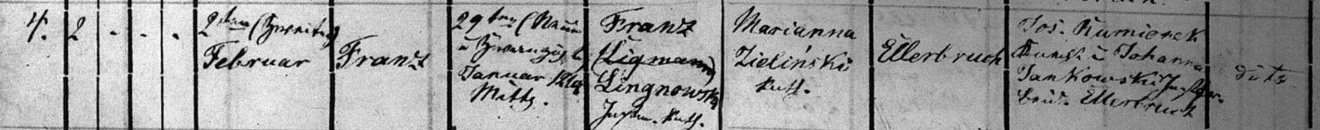 4. 2 . . . 2ten (Zweiten) Februar
Franz
29ten (Neun u Zwanzigst) Januar
Mittg.
Franz (Ligmann) Lingnowski
Kath.
Marianna Zieliński Kath.
Ellerbruch
Jos. Rumionek
u Johanna Jankowski
beide Ellerbruch
dito